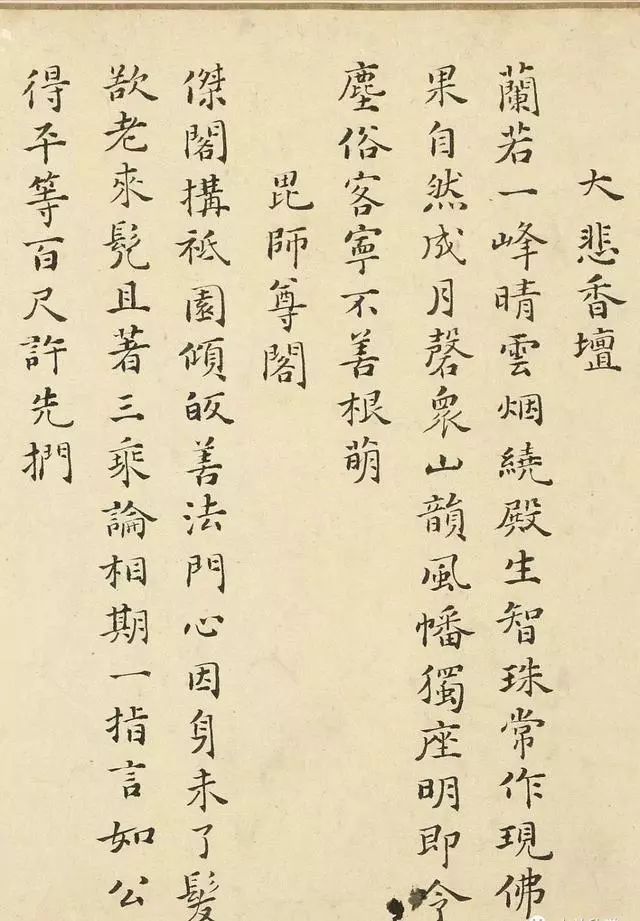 大悲香壇
蘭若一峰晴雲烟繞殿生智珠常作現佛
果自然成月磬衆山韻風幡獨座明即令
塵俗客寧不善根萌
毘師尊閣
傑閣搆祗園傾皈善法門心因身未了髮
欲老來髡且著三乘論相期一指言如公
得平等百尺許先捫